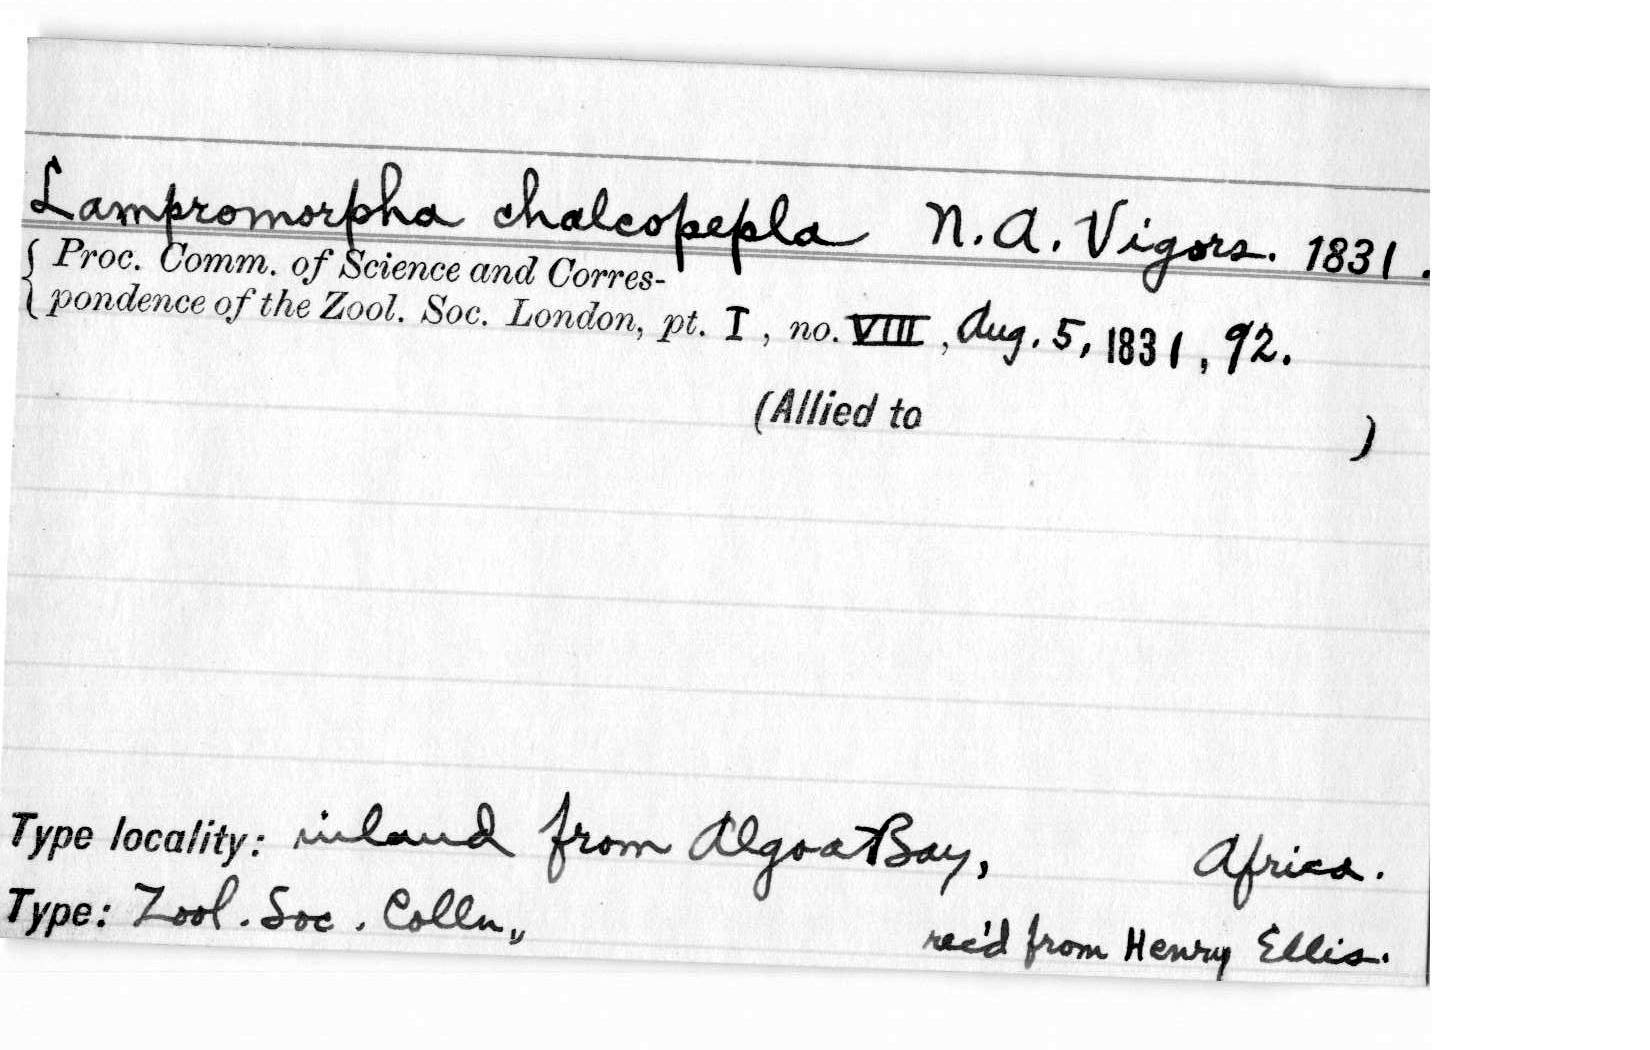 Lampromorpha chalcopepla N. A. Vigors. 1831.
{ Proc. Comm. of Science and Corres-
pondence of the Zool. Soc. London, pt. I, no. VIII, Aug. 5, 1831, 92.
(Allied to )
Type locality: inland from Algoa Bay, Africa.
Type: Zool. Soc. Colln., rec'd from Henry Ellis.